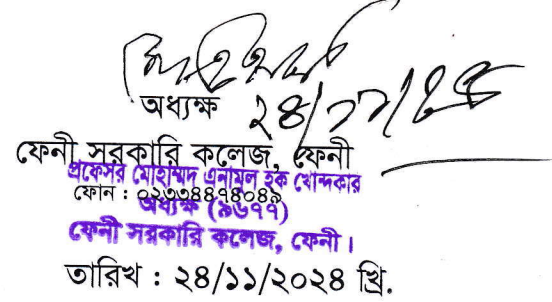 অধ্যক্ষ
২৪/১১/২৪
ফেনী সরকারি কলেজ, ফেনী
প্রফেসর মোহাম্মদ এনামুল হক খোন্দকার
ফোন : ০২৩৩৪৪৭৪০৪৯
অধ্যক্ষ (৯৬৭৭)
ফেনী সরকারি কলেজ, ফেনী।
তারিখ : ২৪/১১/২০২৪ খ্রি.